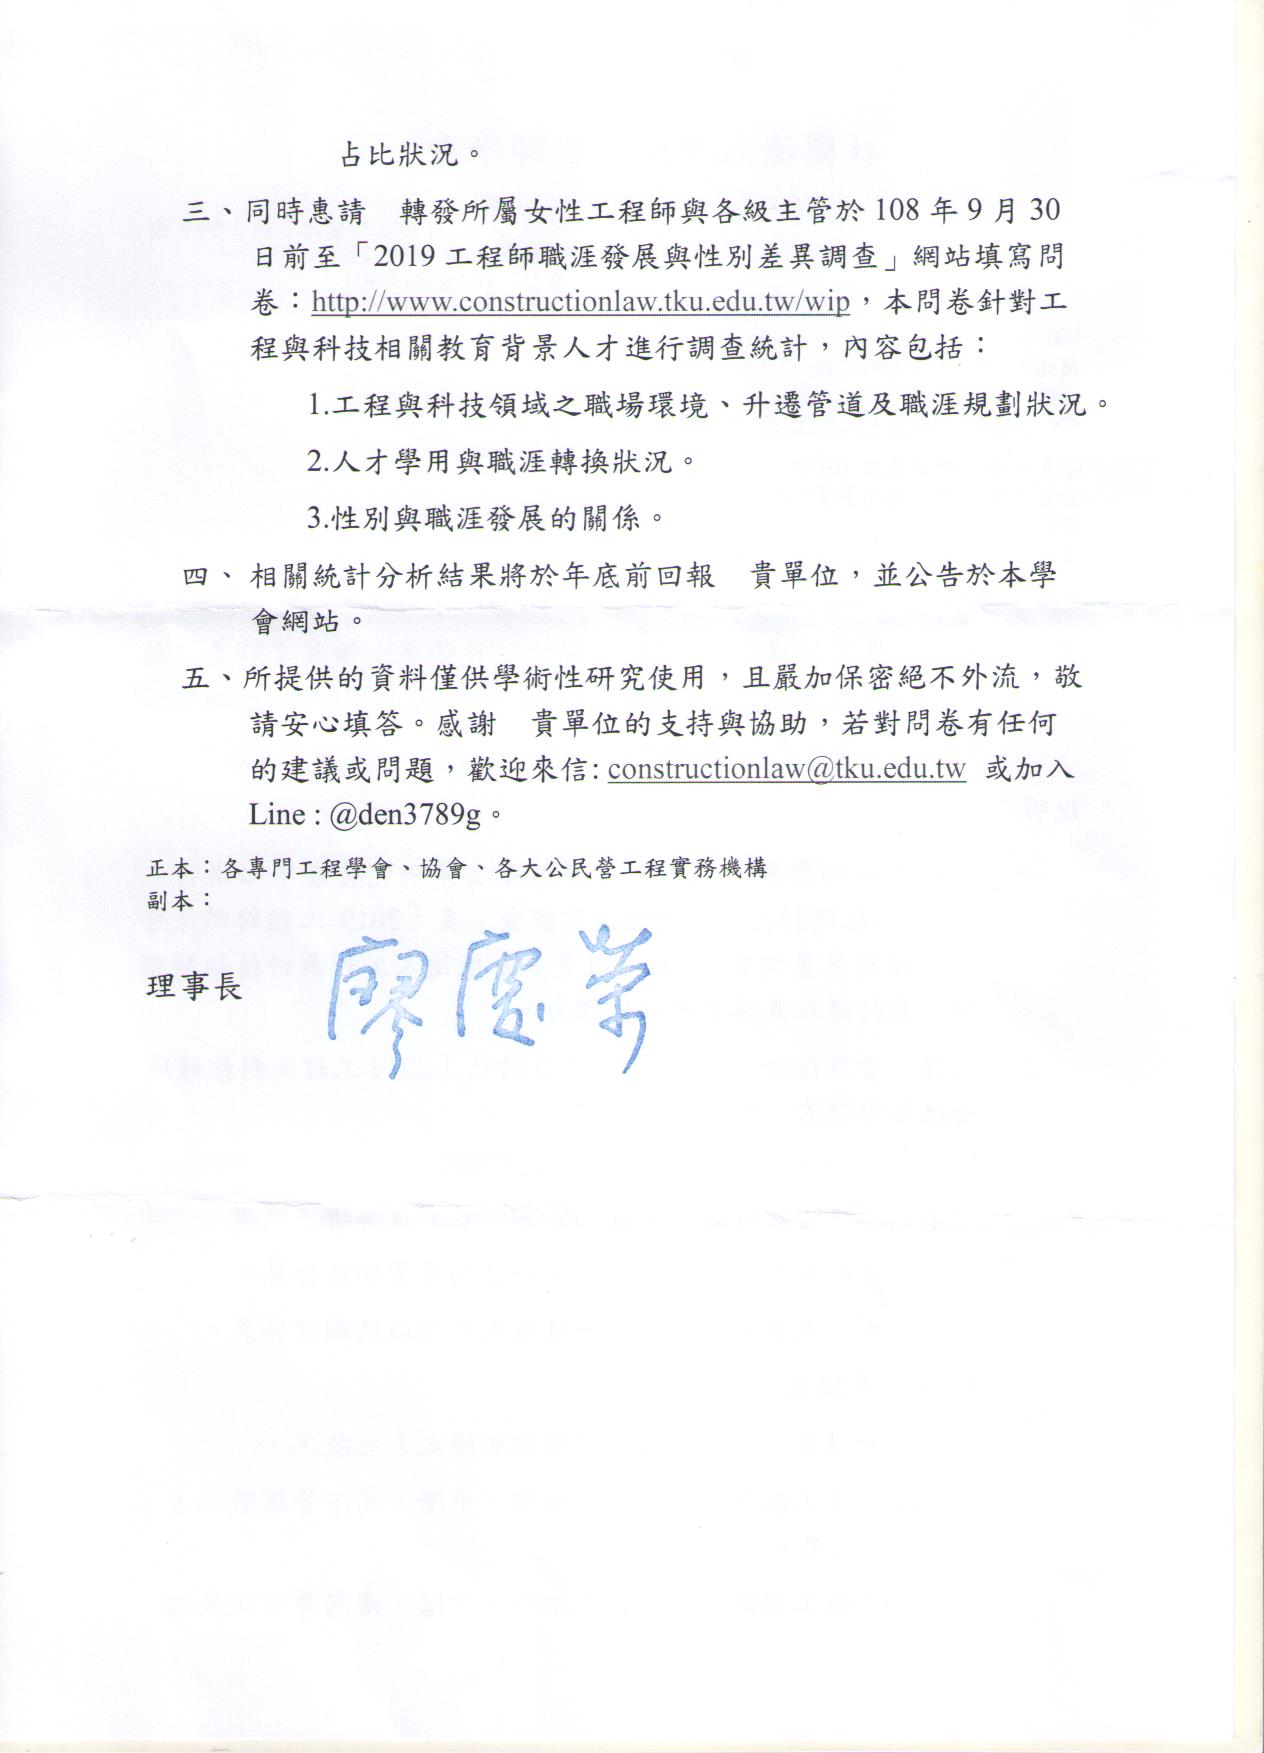 占比狀況。
三、同時惠請　轉發所屬女性工程師與各級主管於 108 年 9 月 30
日前至「2019 工程師職涯發展與性別差異調查」網站填寫問
卷：http://www.constructionlaw.tku.edu.tw/wip，本問卷針對工
程與科技相關教育背景人才進行調查統計，內容包括：
1.工程與科技領域之職場環境、升遷管道及職涯規劃狀況。
2.人才學用與職涯轉換狀況。
3.性別與職涯發展的關係。
四、 相關統計分析結果將於年底前回報　貴單位，並公告於本學
會網站。
五、所提供的資料僅供學術性研究使用，且嚴加保密絕不外流，敬
請安心填答。感謝　貴單位的支持與協助，若對問卷有任何
的建議或問題，歡迎來信: constructionlaw@tku.edu.tw 或加入
Line : @den3789g。
正本：各專門工程學會、協會、各大公民營工程實務機構
副本：
理事長 廖慶榮